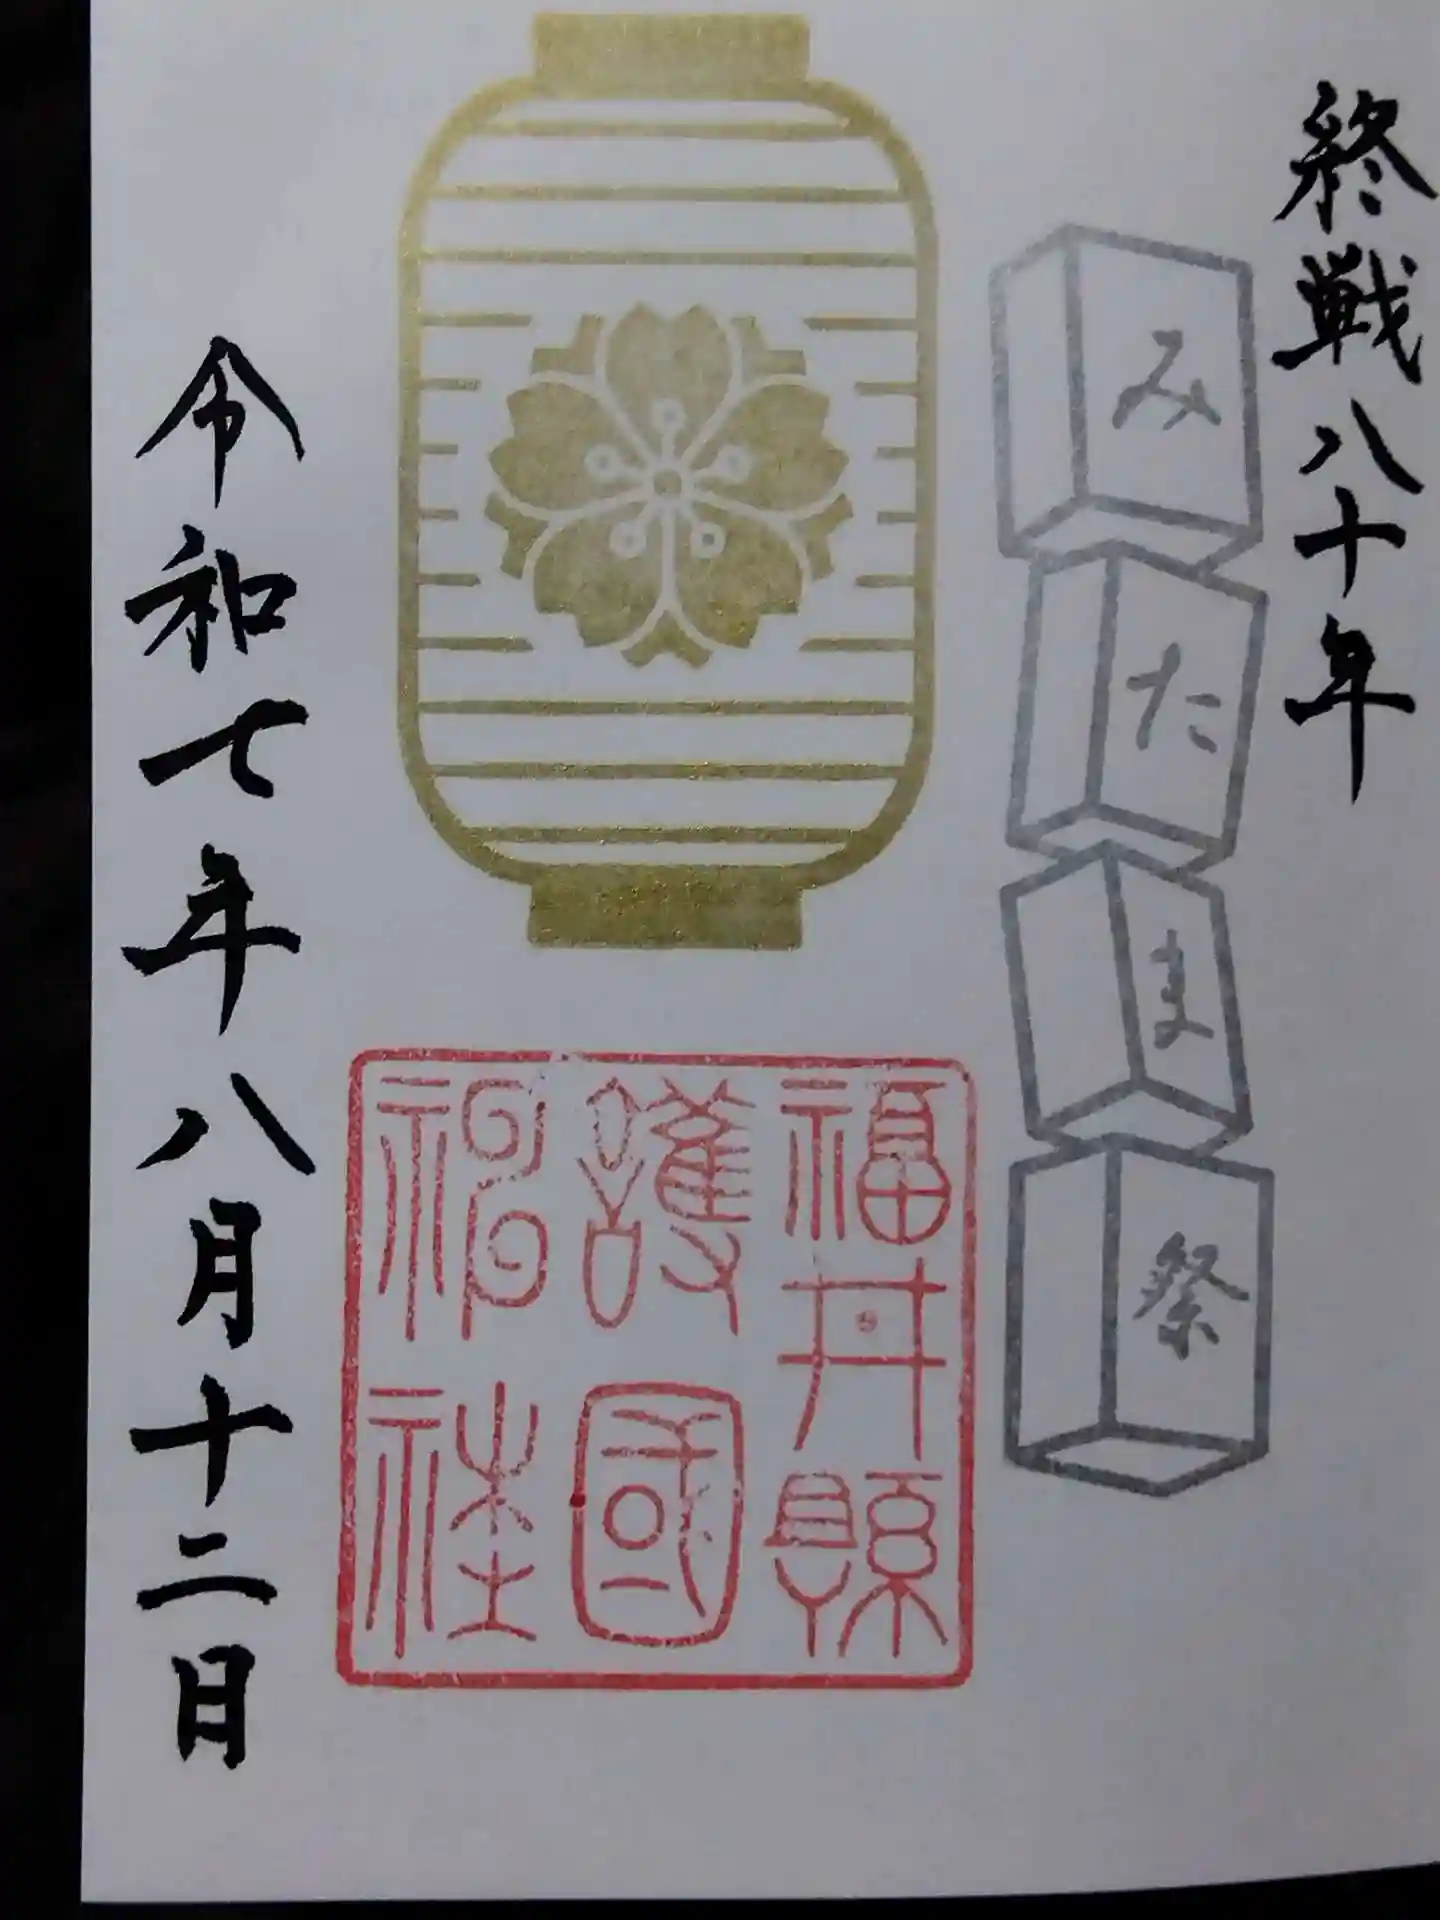 終戦八十年
みたま祭
福井縣
護國
神社
令和七年八月十二日